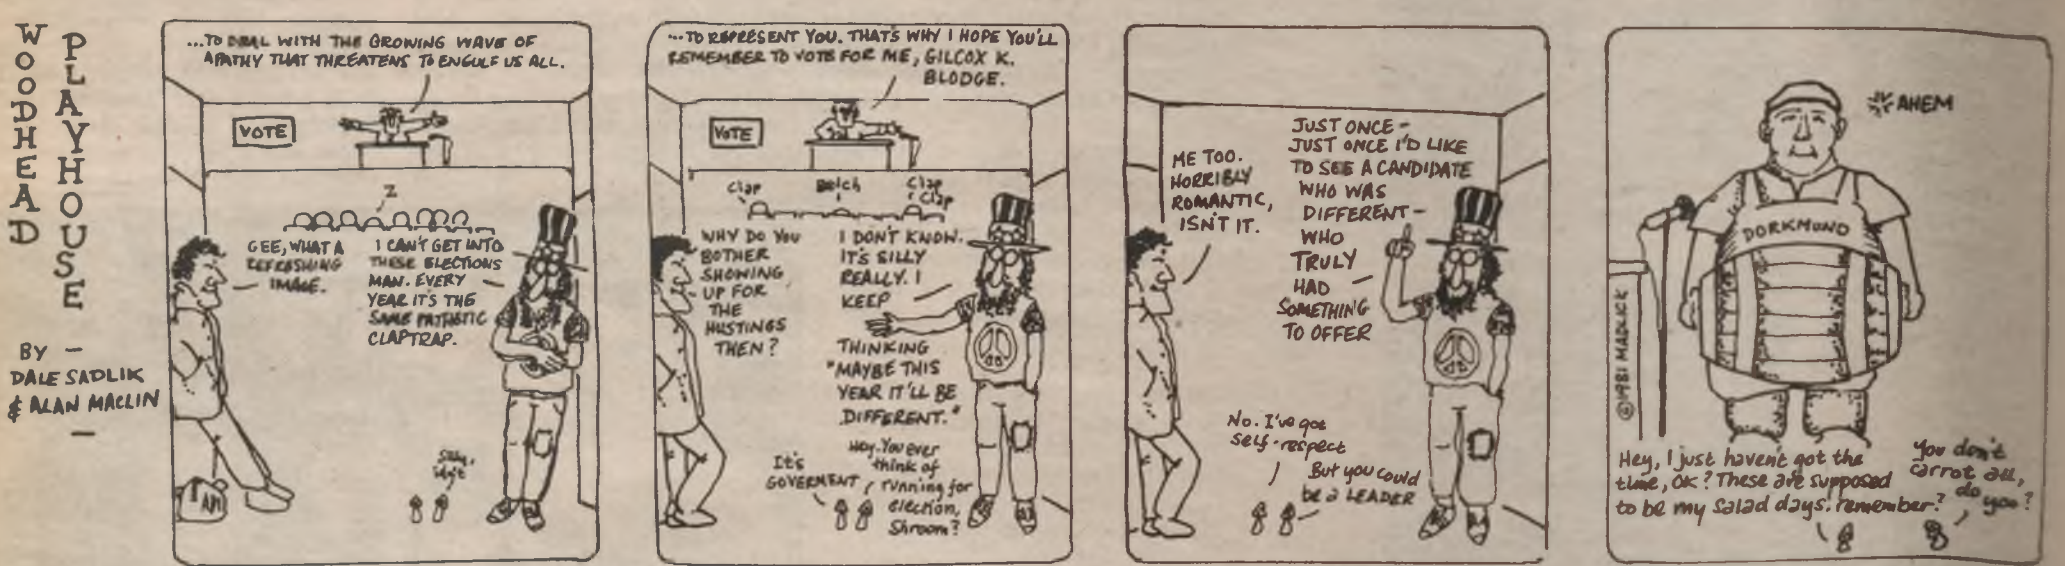 WOODHEAD
PLAYHOUSE
BY —
DALE SADLIK
& ALAN MACLIN
—
...TO DEAL WITH THE GROWING WAVE OF
APATHY THAT THREATENS TO ENGULF US ALL.
VOTE
Z
GEE, WHAT A
REFRESHING
IMAGE.
I CAN'T GET INTO
THESE ELECTIONS
MAN. EVERY
YEAR IT'S THE
SAME PATHETIC
CLAPTRAP.
...TO REPRESENT YOU. THAT'S WHY I HOPE YOU'LL
REMEMBER TO VOTE FOR ME, GILCOX K.
BLODGE.
VOTE
Clap
Belch
Clap
Clap
WHY DO YOU
BOTHER
SHOWING
UP FOR
THE
HUSTINGS
THEN?
I DON'T KNOW.
IT'S SILLY
REALLY. I
KEEP
THINKING
"MAYBE THIS
YEAR IT'LL BE
DIFFERENT."
Hey. You ever
think of
running for
election,
Shroom?
It's
GOVERMENT
ME TOO.
HORRIBLY
ROMANTIC,
ISN'T IT.
JUST ONCE -
JUST ONCE I'D LIKE
TO SEE A CANDIDATE
WHO WAS
DIFFERENT -
WHO
TRULY
HAD
SOMETHING
TO OFFER
No. I've got
self-respect
But you could
be a LEADER
AHEM
DORKMUND
©1981 MADLICK
Hey, I just haven't got the
time, OK? These are supposed
to be my salad days. remember?
You don't
carrot all,
do you?